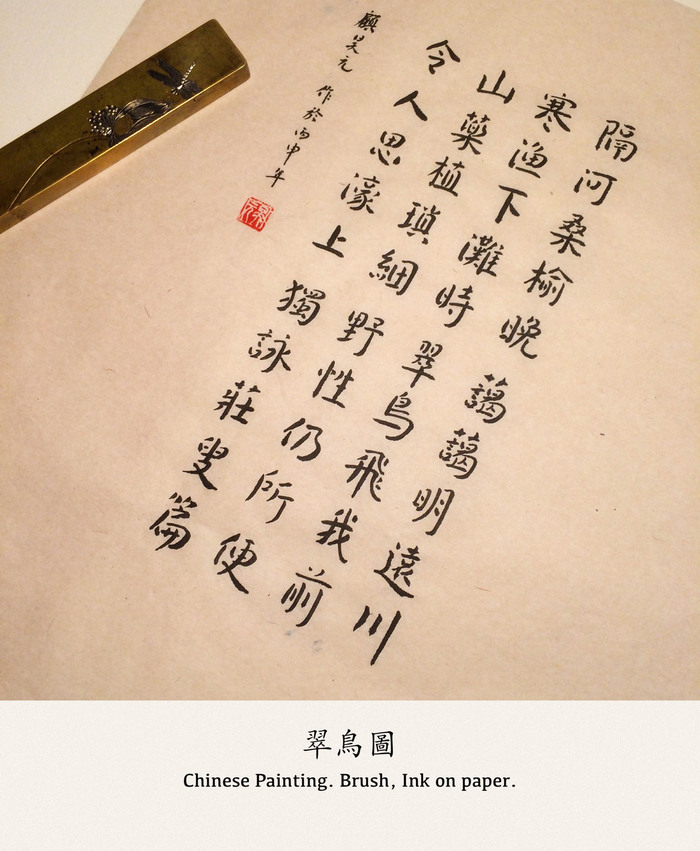 隔河桑榆晚藹藹明遠川
寒漁下灘時翠鳥飛我前
山藥植瑣細野性仍所便
令人思濠上獨詠莊叟篇
顧昊元 作於丙申年
翠鳥圖
Chinese Painting. Brush, Ink on paper.